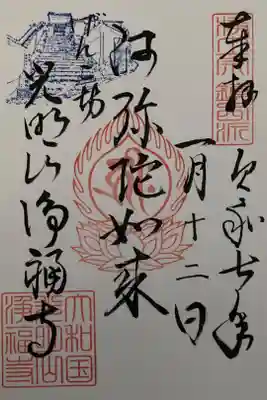 奉拝
令和七年
一月十二日
阿弥陀如来
光明山浄福寺
大和国
浄福寺